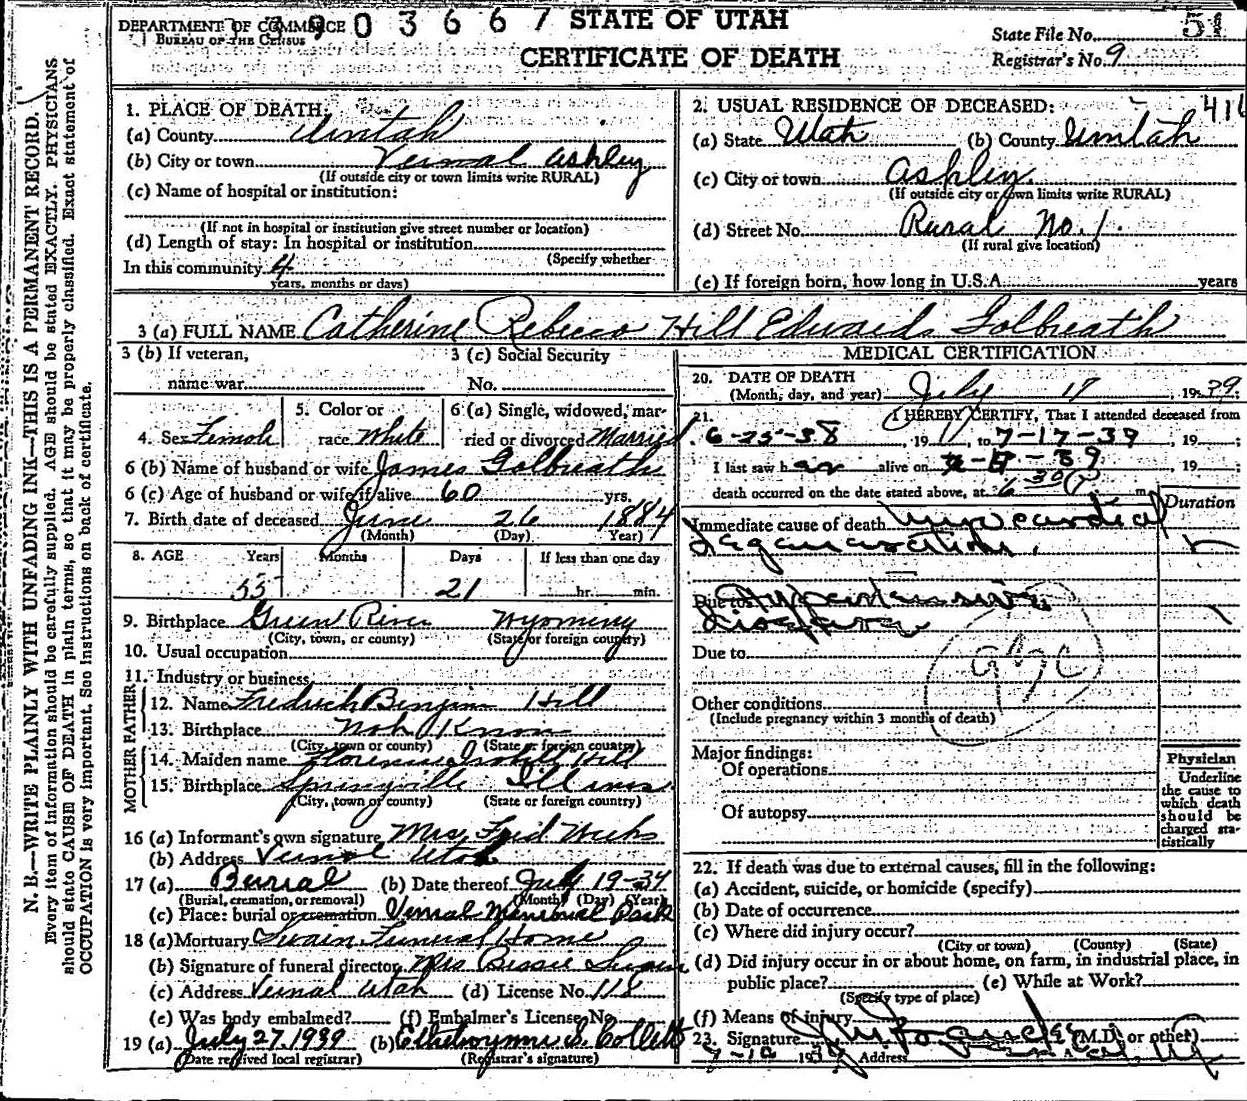 DEPARTMENT OF COMMERCE
BUREAU OF THE CENSUS
3903667
STATE OF UTAH
CERTIFICATE OF DEATH
State File No. 51
Registrar's No. 9
N. B.—WRITE PLAINLY WITH UNFADING INK—THIS IS A PERMANENT RECORD.
Every item of information should be carefully supplied. AGE should be stated EXACTLY. PHYSICIANS
should state CAUSE OF DEATH in plain terms, so that it may be properly classified. Exact statement of
OCCUPATION is very important. See Instructions on back of certificate.
1. PLACE OF DEATH:
(a) County Uintah
(b) City or town Vernal Ashley
(If outside city or town limits write RURAL)
(c) Name of hospital or institution:
(If not in hospital or institution give street number or location)
(d) Length of stay: In hospital or institution
(Specify whether
In this community 4
years, months or days)
2. USUAL RESIDENCE OF DECEASED:
416
(a) State Utah (b) County Uintah
(c) City or town Ashley
(If outside city or town limits write RURAL)
(d) Street No. Rural No. 1.
(If rural give location)
(e) If foreign born, how long in U.S.A. years
3 (a) FULL NAME Catherine Rebecca Hill Edwards Golbreath
3 (b) If veteran,
name war
3 (c) Social Security
No.
4. Sex Female
5. Color or
race White
6 (a) Single, widowed, mar-
ried or divorced Married
6 (b) Name of husband or wife James Golbreath
6 (c) Age of husband or wife if alive 60 yrs.
7. Birth date of deceased June 26 1884
(Month) (Day) Year)
8. AGE Years Months Days If less than one day
55 21 hr. min.
9. Birthplace Green River Wyoming
(City, town, or county) (State or foreign country)
10. Usual occupation
11. Industry or business
FATHER
12. Name Hill
13. Birthplace Not Known
(City, town or county) (State or foreign country)
MOTHER
14. Maiden name Hill
15. Birthplace Springville Illinois
(City, town or county) (State or foreign country)
16 (a) Informant's own signature Mrs. Weeks
(b) Address Vernal Utah
17 (a) Burial (b) Date thereof July 19-39
(Burial, cremation, or removal) (Month) (Day) (Year)
(c) Place: burial or cremation Vernal Memorial Park
18 (a) Mortuary Swain Funeral Home
(b) Signature of funeral director Mrs Bessie Swain
(c) Address Vernal Utah (d) License No. 118
(e) Was body embalmed? (f) Embalmer's License No.
19 (a) July 27, 1939 (b) S. Collett
(Date received local registrar) (Registrar's signature)
MEDICAL CERTIFICATION
20. DATE OF DEATH
(Month, day, and year) July 17 1939
21. I HEREBY CERTIFY, That I attended deceased from
6-25-38, 19 to 7-17-39, 19 ;
I last saw her alive on 7-17-39 19 ;
death occurred on the date stated above, at 6 30 P m.
Duration
Immediate cause of death Myocardial
Due to Hypertensive
Due to
Other conditions
(Include pregnancy within 3 months of death)
Major findings:
Of operations
Of autopsy
Physician
Underline
the cause to
which death
should be
charged sta-
tistically
22. If death was due to external causes, fill in the following:
(a) Accident, suicide, or homicide (specify)
(b) Date of occurrence
(c) Where did injury occur?
(City or town) (County) (State)
(d) Did injury occur in or about home, on farm, in industrial place, in
public place? (e) While at Work?
(Specify type of place)
(f) Means of injury
23. Signature (M.D. or other)
Address Vernal, Ut